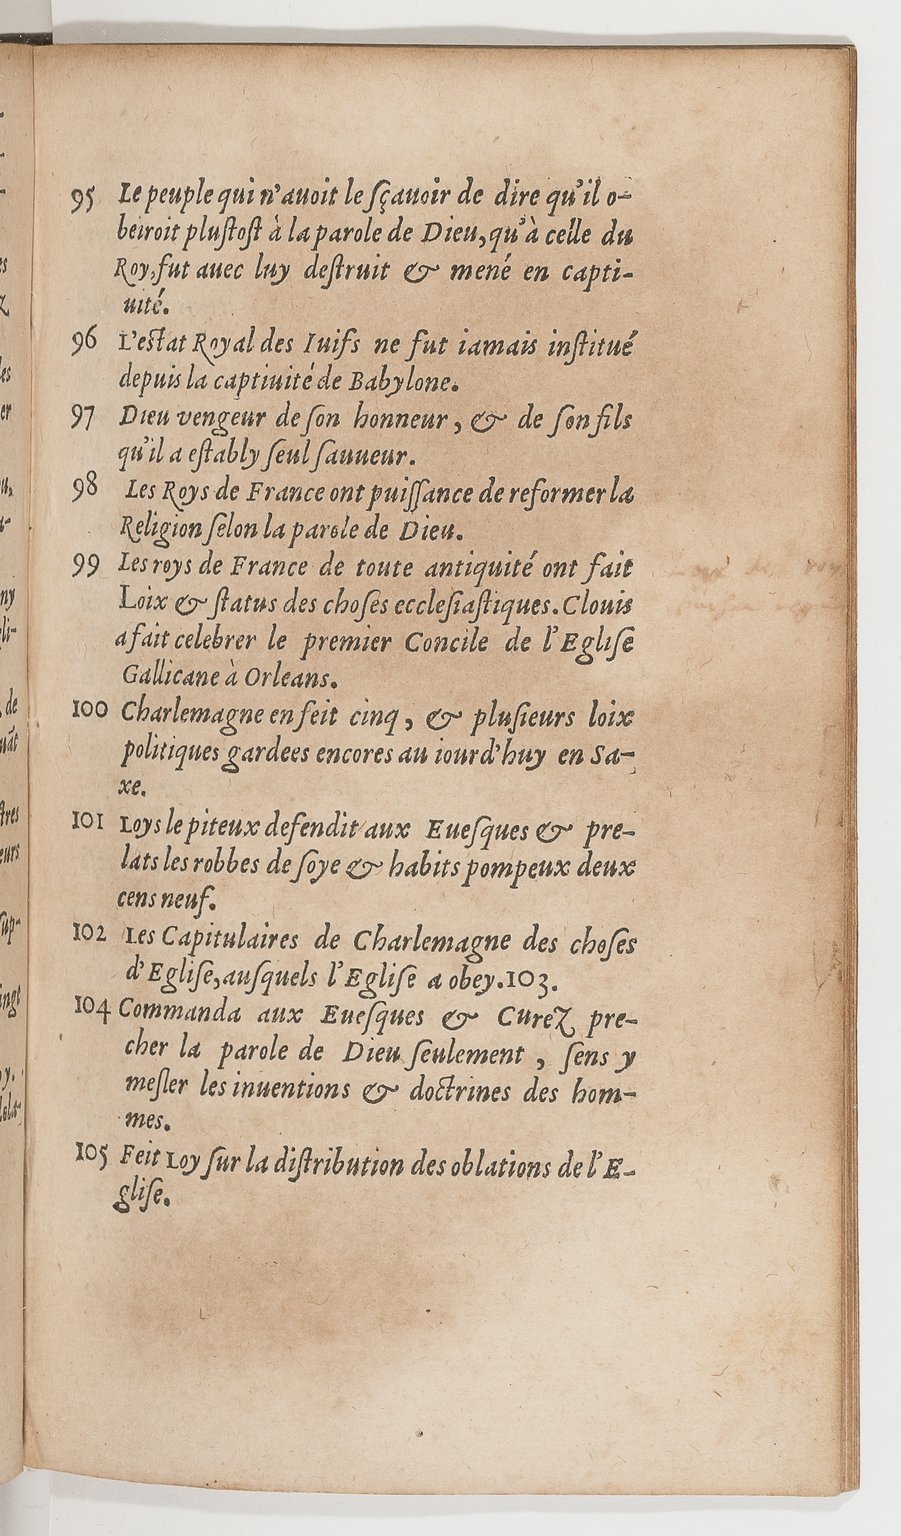 95 Le peuple qui n'auoit le sçauoir de dire qu'il o-
beiroit plustost à la parole de Dieu, qu'à celle du
Roy, fut auec luy destruit & mené en capti-
uité.
96 L'estat Royal des Iuifs ne fut iamais institué
depuis la captiuité de Babylone.
97 Dieu vengeur de son honneur, & de son fils
qu'il a estably seul sauueur.
98 Les Roys de France ont puissance de reformer la
Religion selon la parole de Dieu.
99 Les roys de France de toute antiquité ont fait
Loix & status des choses ecclesiastiques. Clouis
a fait celebrer le premier Concile de l'Eglise
Gallicane à Orleans.
100 Charlemagne en feit cinq, & plusieurs loix
politiques gardees encores au iourd'huy en Sa-
xe.
101 Loys le piteux defendit aux Euesques & pre-
lats les robbes de soye & habits pompeux deux
cens neuf.
102 Les Capitulaires de Charlemagne des choses
d'Eglise, ausquels l'Eglise a obey. 103.
104 Commanda aux Euesques & Curez pre-
cher la parole de Dieu seulement, sens y
mesler les inuentions & doctrines des hom-
mes.
105 Feit Loy sur la distribution des oblations de l'E-
glise.